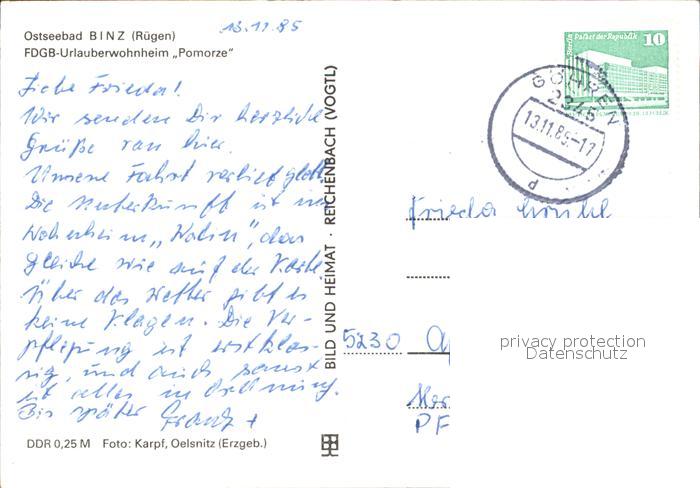 13.11.85
Ostseebad BINZ (Rügen)
FDGB-Urlauberwohnheim „Pomorze“
Liebe Frieda!
Wir senden Dir herzliche
Grüße von hier.
Unsere Fahrt verlief glatt.
Die Unterkunft ist im
Wohnheim „Wolin“, das
gleiche wie auf der Karte.
Über das Wetter gibt es
keine Klagen. Die Ver-
pflegung ist erstklas-
sig, und auch sonst
ist alles in Ordnung.
Bis später
DDR 0,25 M Foto: Karpf, Oelsnitz (Erzgeb.)
BILD UND HEIMAT · REICHENBACH (VOGTL)
Berlin Palast der Republik
10
GÖHREN
2345
13.11.85.-17
Frieda
5230
PF
privacy protection
Datenschutz